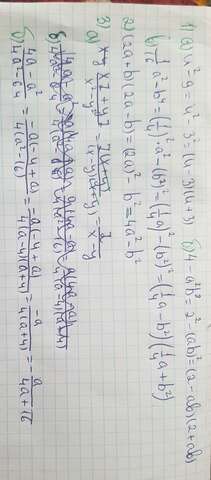 1) а) u² - 9 = u² - 3² = (u - 3)(u + 3) б) 4 - a²b² = 2² - (ab)² = (2 - ab)(2 + ab)
в) 1/16 a² - b⁴ = (1/4)² · a² - (b²)² = (1/4 a)² - (b²)² = (1/4 a - b²)(1/4 a + b²)
2) (2a + b)(2a - b) = (2a)² - b² = 4a² - b²
3)
а) 7x + 7y / x² - y² = 7(x + y) / (x - y)(x + y) = 7 / x - y
б) 4a - a² / 4a² - 64 = -a(-4 + a) / 4(a² - 16) = -a(-4 + a) / 4(a - 4)(a + 4) = -a / 4(a + 4) = - a / 4a + 16